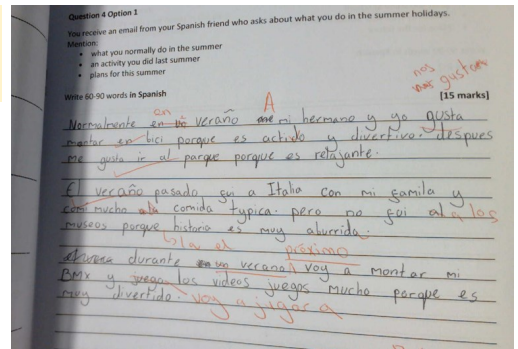 Question 4 Option 1
You receive an email from your Spanish friend who asks about what you do in the summer holidays.
Mention:
• what you normally do in the summer
• an activity you did last summer
• plans for this summer
nos gustan
Write 60-90 words in Spanish
[15 marks]
en A
Normalmente en veraño mi hermano y yo gusta
montar en bici porque es actido y divertivo. despues
me gusta ir al parque porque es relajante.
El veraño pasado, fui a Italia con mi familia y
comí mucho a la comida typica. pero no fui al a los
museos porque historia es muy aburrida.
la el próximo
durante un verano voy a montar mi
BMX y juego los videos juegos mucho porque es
muy divertido. voy a jugar a